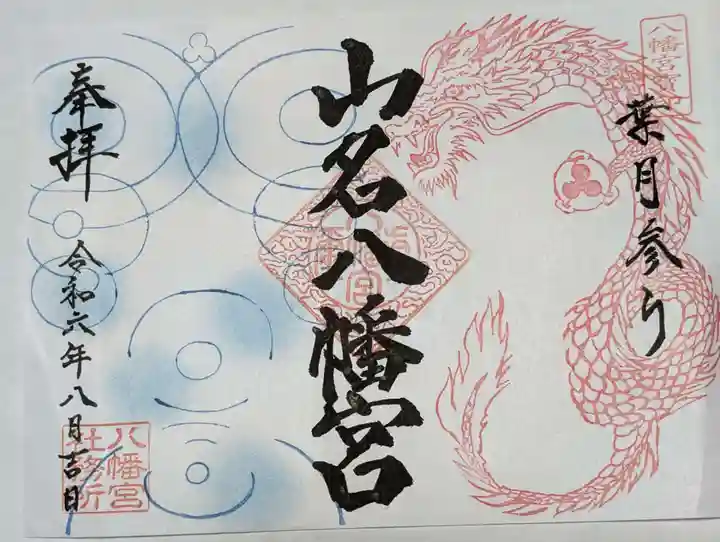 葉月参り
山名八幡宮
奉拝
令和六年八月吉日
八幡宮
社務所